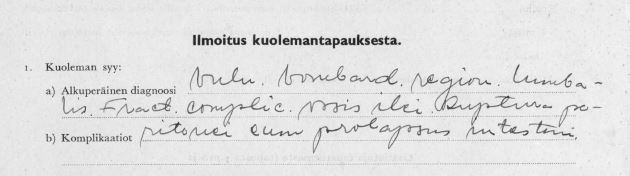 Ilmoitus kuolemantapauksesta.
1. Kuoleman syy:
a) Alkuperäinen diagnoosi vuln. bombard. region. lumba-
lis. Fract. complic. ossis ilei. Ruptura pe-
b) Komplikaatiot ritonei cum prolapsus intestini.